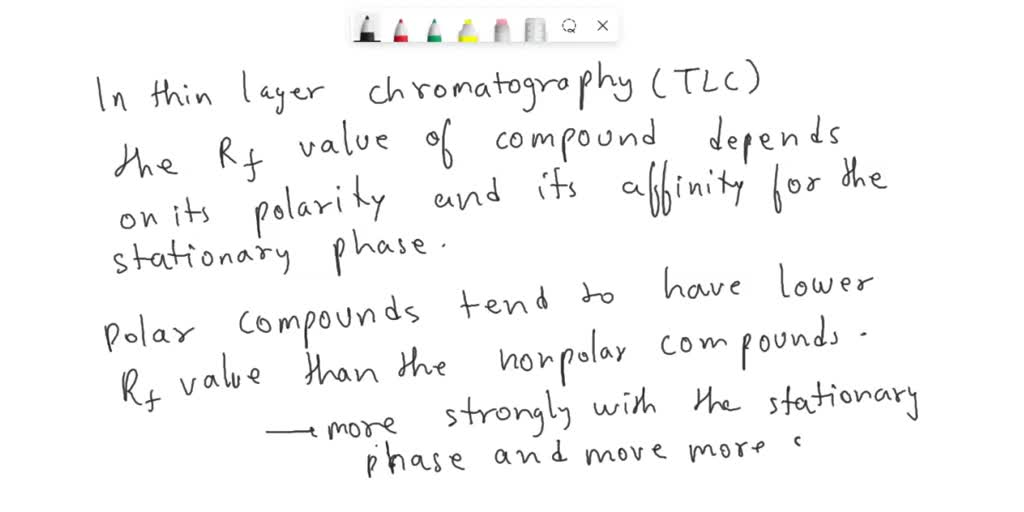 In thin layer chromatography (TLC)
the Rf value of compound depends
on its polarity and its affinity for the
stationary phase.
Polar compounds tend to have lower
Rf value than the nonpolar compounds.
→ more strongly with the stationary
phase and move more